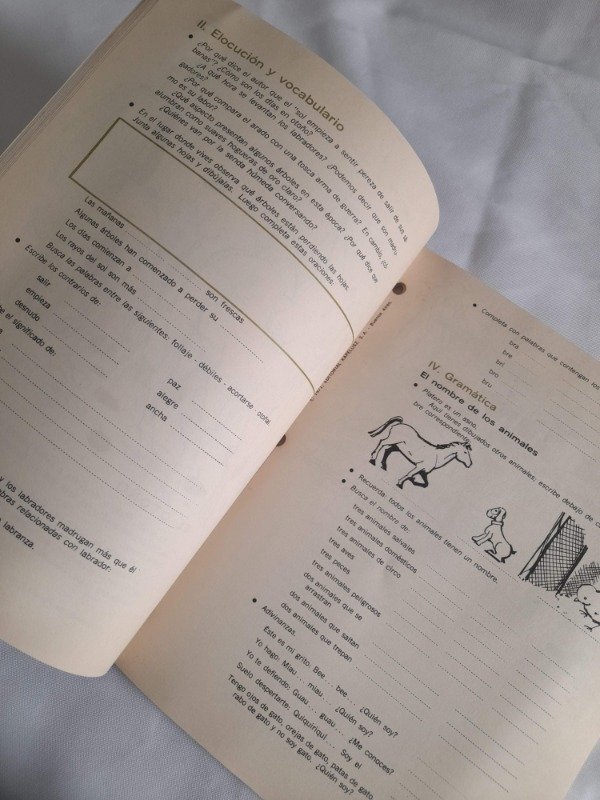 II. Elocución y vocabulario
¿Por qué dice el autor que el "sol empieza a sentir pereza de salir de sus
banas"? ¿Cómo son los días en otoño?
¿A qué hora se levantan los labradores? ¿Podemos decir que son madru-
gadores?
¿Por qué compara el arado con una tosca arma de guerra? En cambio, có-
mo es su labor?
¿Qué aspecto presentan algunos árboles en esta época? ¿Por qué dice que
alumbran como suaves hogueras de oro claro?
¿Quiénes van por la senda húmeda conversando?
En el lugar donde vives observa qué árboles están perdiendo las hojas.
Junta algunas hojas y dibújalas. Luego completa estas oraciones:
Las mañanas son frescas
Algunas árboles han comenzado a perder su
Los días comienzan a
Los rayos del sol son más
Busca las palabras entre las siguientes: follaje - débiles - acortarse -
Escribe los contrarios de:
salir paz
empieza alegre
desnudo ancha
el significado de:
y los labradores madrugan más que él
bras relacionadas con labrador.
labranza.
EDITORIAL KAPELUSZ S.A. - Buenos Aires
Completa con palabras que contengan
bra
bre
bri
bro
bru
IV. Gramática
El nombre de los animales
Platero es un asno.
Aquí tienes dibujados otros animales; escribe debajo de
bre correspondiente.
Recuerda: todos los animales tienen un nombre.
Busca el nombre de:
tres animales salvajes
tres animales domésticos
tres animales de circo
tres aves
tres peces
tres animales peligrosos
dos animales que se
arrastran
dos animales que saltan
dos animales que trepan
Adivinanzas.
Este es mi grito: Bee... bee. ¿Quién soy?
Yo hago: Miau... miau... ¿Quién soy?
Yo te defiendo: Guau... guau. ¿Me conoces?
Suelo despertarte: Quiquiriquí... Soy el
Tengo ojos de gato, orejas de gato, patas de gato
rabo de gato y no soy gato. ¿Quién soy?